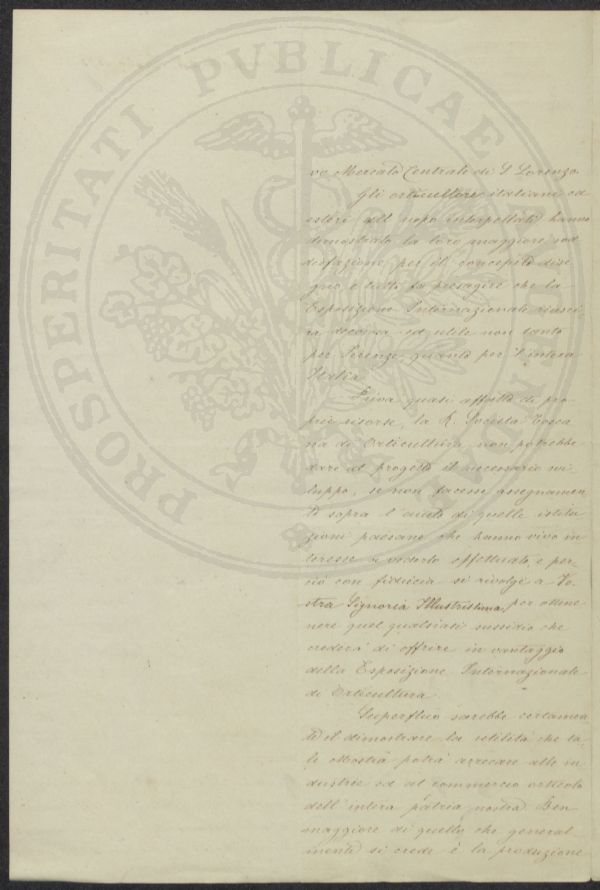 PROSPERITATI PVBLICAE
vo Mercato Centrale di S. Lorenzo.
Gli orticultori italiani ed
esteri all'uopo interpellati hanno
dimostrato la loro maggiore sod
disfazione per il concepito dise
gno, e tutto fa presagire che la
Esposizione Internazionale riusci
rà decorosa ed utile non tanto
per Firenze quanto per l'intera
Italia.
Priva quasi affatto di pro-
prie risorse, la R. Società Tosca
na di Orticultura non potrebbe
dare al progetto il necessario svi-
luppo, se non facesse assegnamen
to sopra l'aiuto di quelle istitu
zioni paesane che hanno vivo in
teresse a vederlo effettuato, e per-
ciò con fiducia si rivolge a Vo-
stra Signoria Illustrissima, per otte
nere quel qualsiasi sussidio che
crederà di offrire in vantaggio
della Esposizione Internazionale
di Orticultura.
Superfluo sarebbe certamen
te il dimostrare la utilità che ta-
le Mostra potrà arrecare alle in
dustrie ed al commercio orticolo
dell'intera patria nostra. Ben
maggiore di quello che general
mente si crede è la produzione